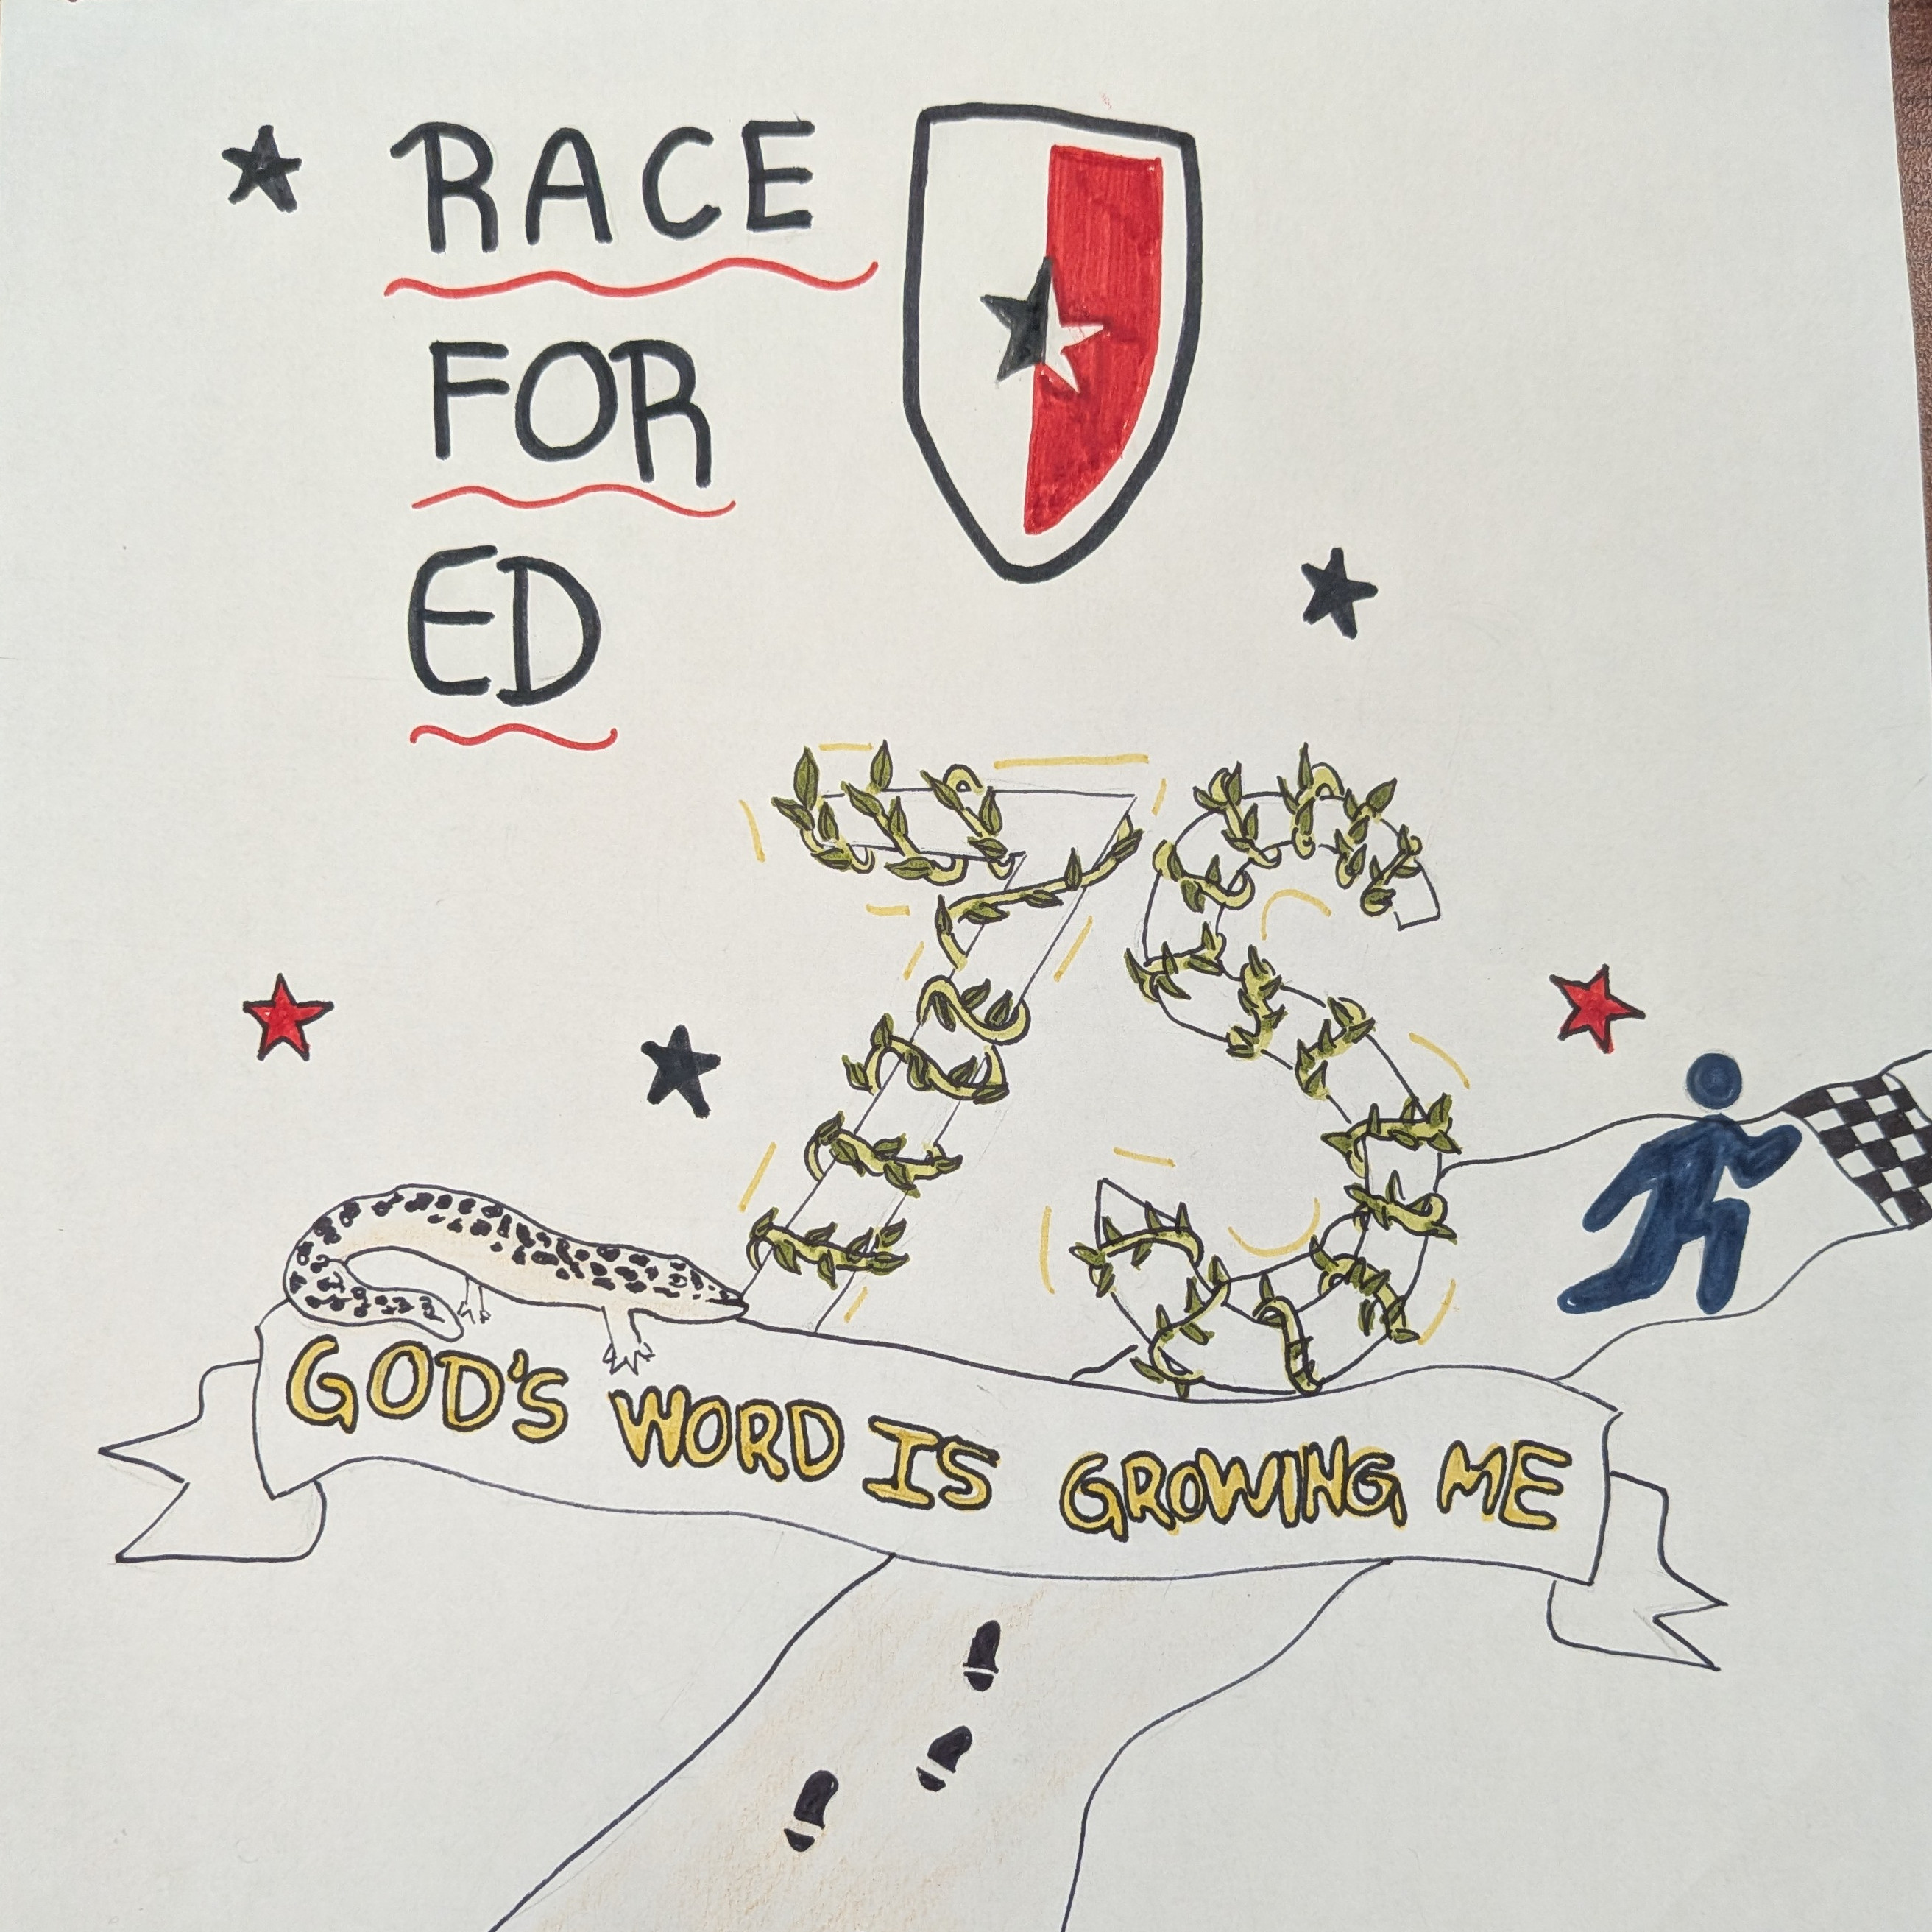 RACE
FOR
ED
7S
GOD'S WORD IS GROWING ME